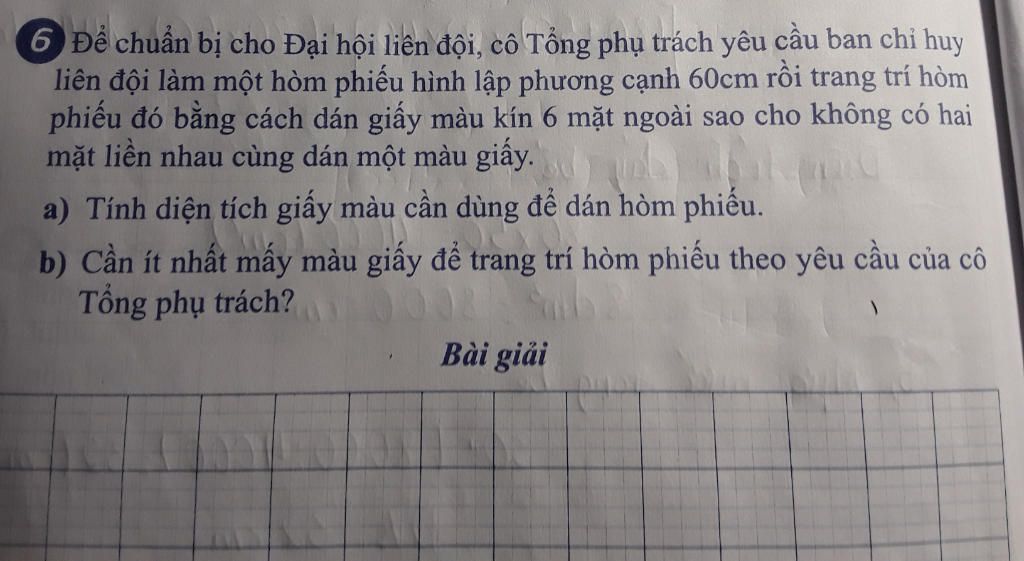 6 Để chuẩn bị cho Đại hội liên đội, cô Tổng phụ trách yêu cầu ban chỉ huy
liên đội làm một hòm phiếu hình lập phương cạnh 60cm rồi trang trí hòm
phiếu đó bằng cách dán giấy màu kín 6 mặt ngoài sao cho không có hai
mặt liền nhau cùng dán một màu giấy.
a) Tính diện tích giấy màu cần dùng để dán hòm phiếu.
b) Cần ít nhất mấy màu giấy để trang trí hòm phiếu theo yêu cầu của cô
Tổng phụ trách?
Bài giải